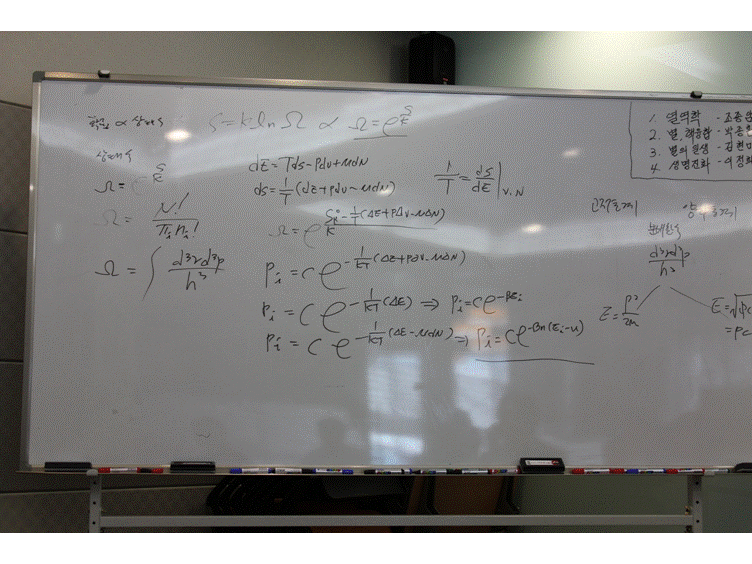 확률 ∝ 상태수 S = k ln Ω ∝ Ω = e^{S/k}
상태수
Ω = e^{S/k}
Ω = N! / Π_i n_i!
Ω = ∫ d³r d³p / h³
dE = Tds - pdv + μdN
ds = 1/T (dE + pdv - μdN)
1/T = ds/dE |_{V.N}
Ω = e^{S_i/k - 1/T(ΔE + pdv - μΔN)}
P_i = C e^{-1/kT (ΔE + pdv - μdN)}
P_i = C e^{-1/kT (ΔE)} ⇒ P_i = C e^{-βE_i}
P_i = C e^{-1/kT (ΔE - μdN)} ⇒ P_i = C e^{-βn(E_i - u)}
1. 열역학 - 조
2. 별, 핵융합 - 박
3. 별의 일생 - 김현
4. 생명진화 - 이정
d³r d³p / h³
E = p²/2m
E = √(pc
= pc